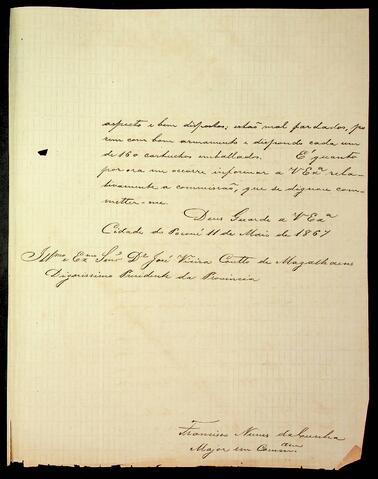 aspecto e bem dispostos; estão mal fardados, po
rem com bom armamento e dispondo cada um
de 160 cartuchos emballados. É quanto
por ora me occorre informar a V Exª rela-
tivamente a commissão, que se dignou com-
metter-me.
Deus Guarde a V Exª
Cidade de Poconé 11 de Maio de 1867
Illmo e Ex Senr Dr José Vieira Coutto de Magalhaens
Digonissimo Presidente da Provincia
Francisco Nunes da Cunha
Major em Comm.